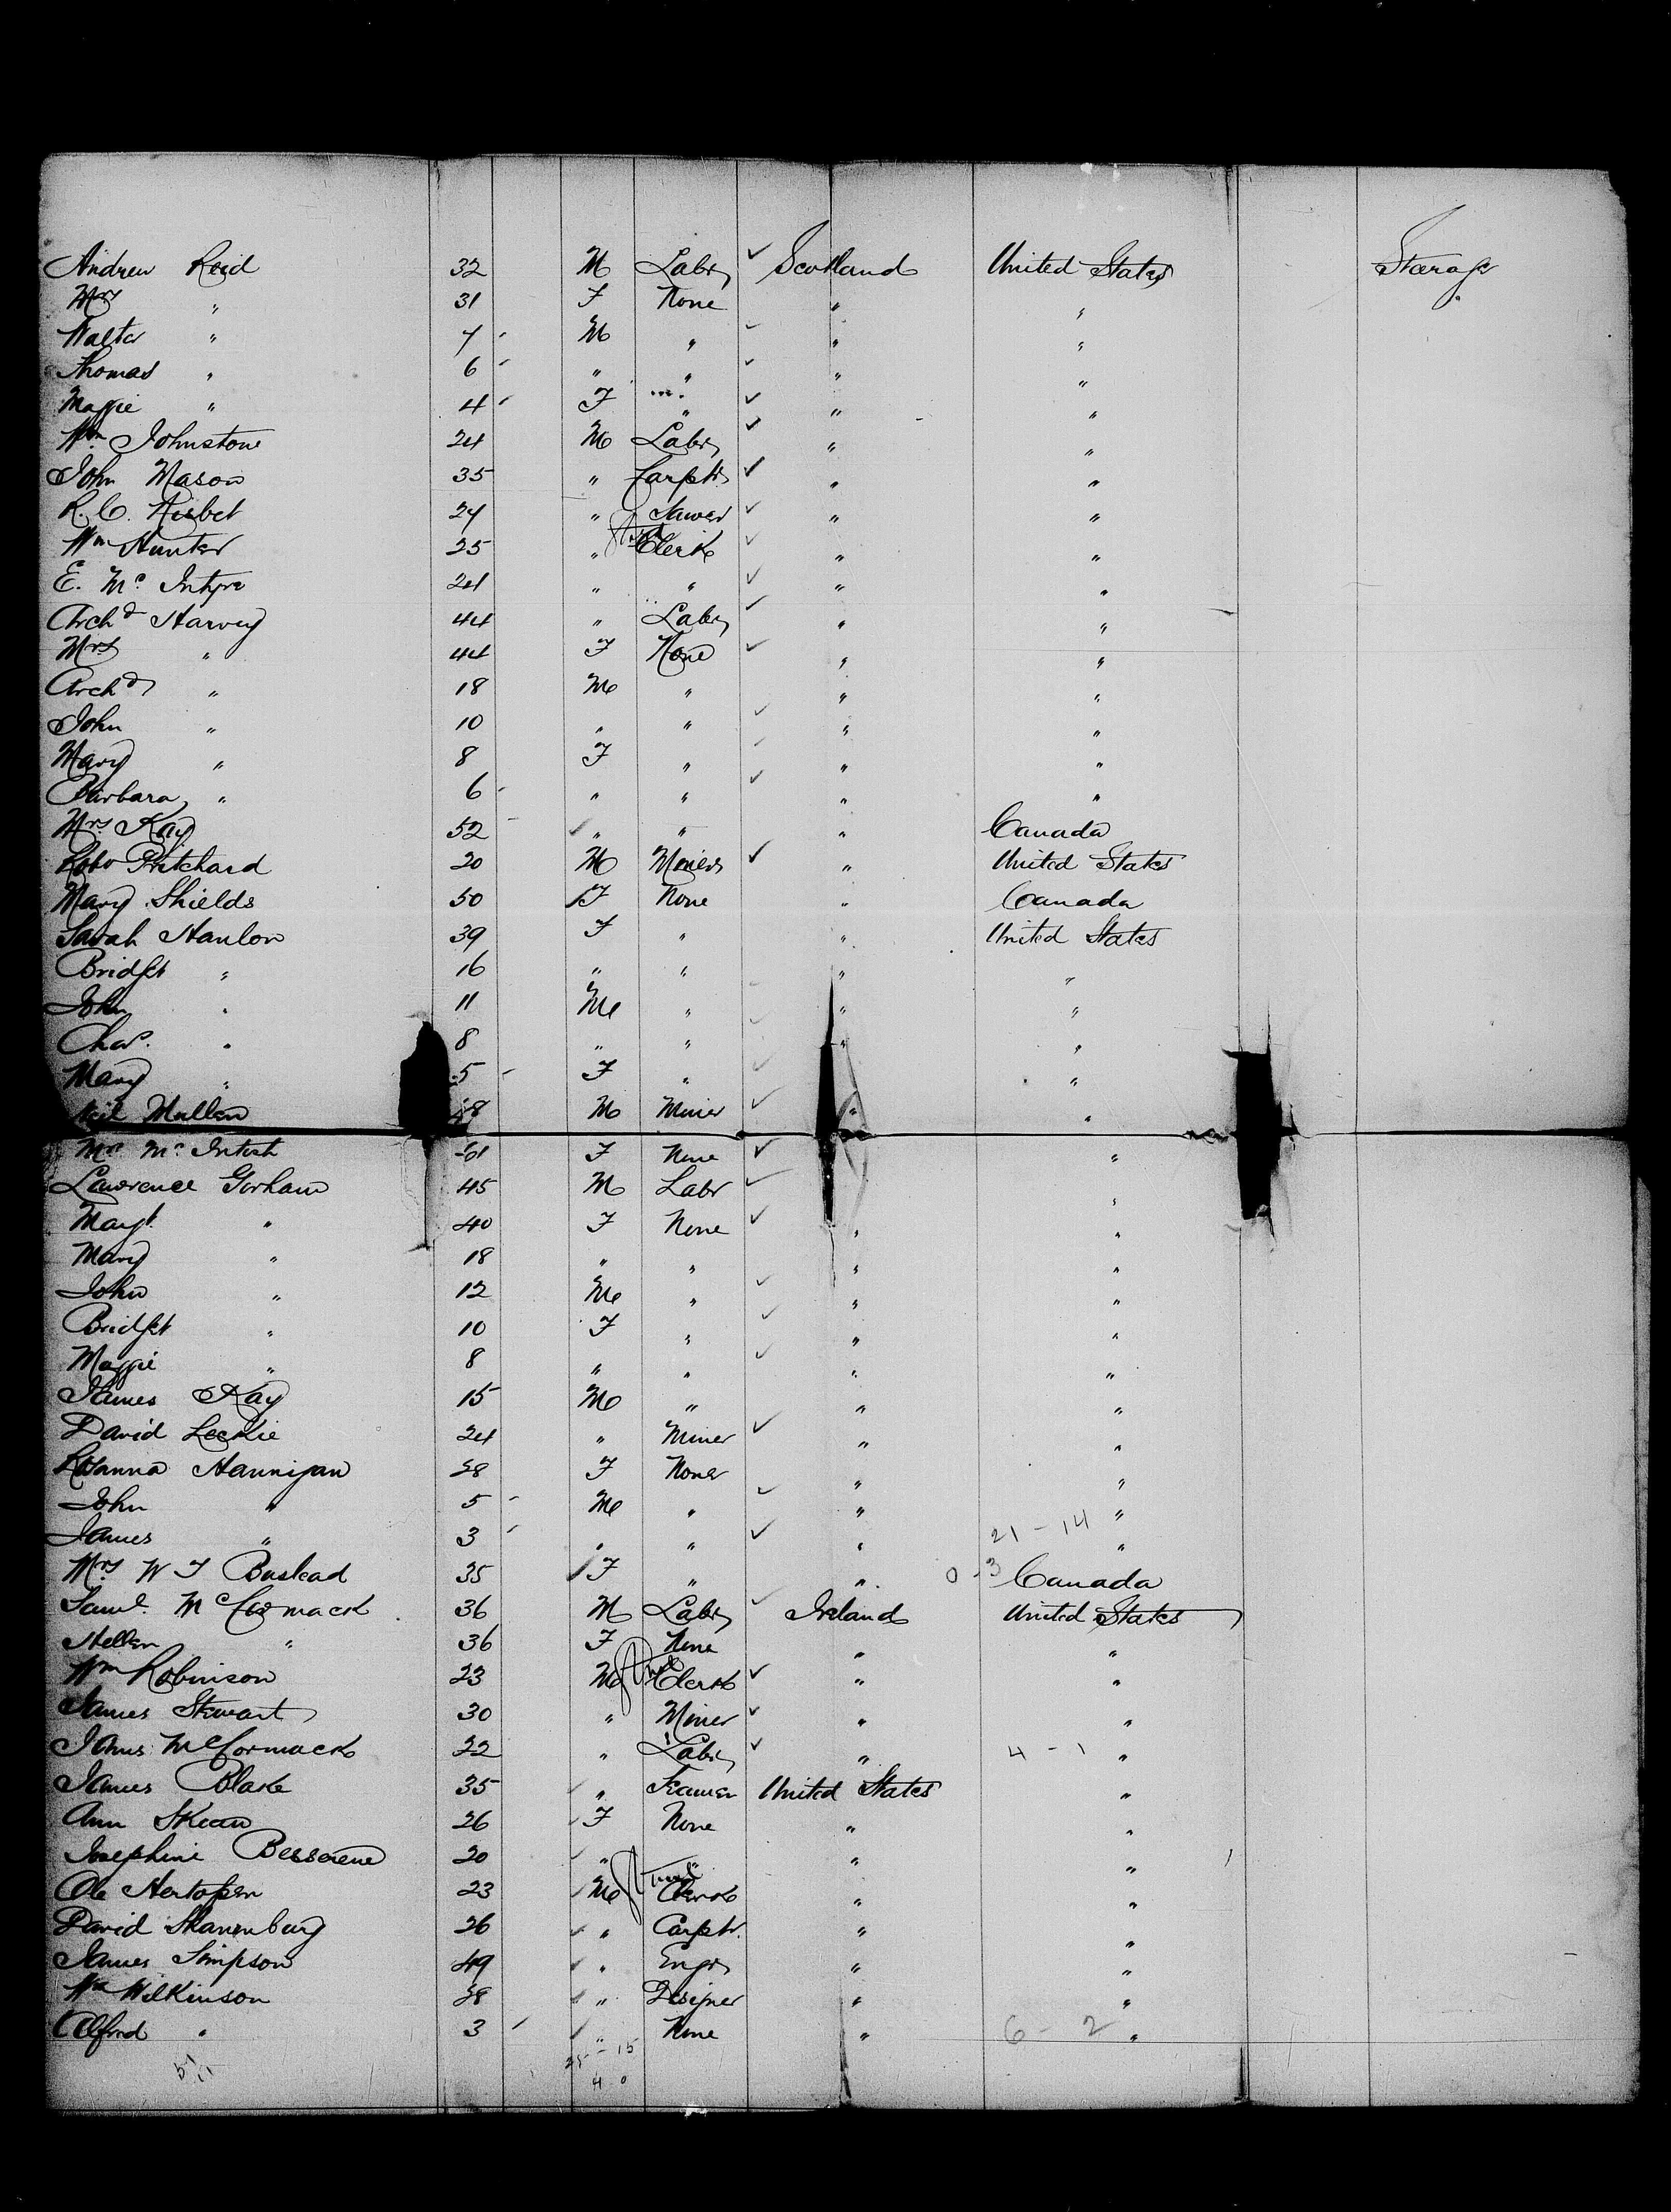 Andrew Reid 32 M Labr Scotland United States Steerage
Mrs " 31 F None " " "
Walter " 7 M " " "
Thomas " 6 " " " "
Maggie " 4 F " " "
Wm Johnstone 24 M Labr " "
John Mason 35 " Carptr " "
R. C. Nisbet 24 " Sawer " "
Wm Hunter 25 " Clerk " "
E. Mc Intyre 24 " " " "
Archd Harvey 44 " Labr " "
Mrs " 44 F None " "
Archd " 18 M " " "
John " 10 " " " "
Mary " 8 F " " "
Barbara " 6 " " " "
Mrs Kay 52 " " " Canada
Robt Pritchard 20 M Miner " United States
Mary Shields 50 F None " Canada
Sarah Hanlon 39 F " " United States
Bridget " 16 " " " "
John " 11 M " " "
Chas. " 8 " " " "
Mary " 5 F " " "
Neil Mullen 48 M Miner " "
Mrs Mc Intosh F None "
Lawrence Gorham 45 M Labr "
Margt " 40 F None " "
Mary " 18 " " " "
John " 12 M " " "
Bridget " 10 F " " "
Maggie " 8 " " " "
James Kay 15 M " " "
David Leckie 24 " Miner " "
Rosanna Hannigan 28 F None " "
John " 5 M " " "
James " 3 " " " 21 - 14 "
Mrs W J Buslead 35 F " " 0 - 3 Canada
Saml. McCormack 36 M Labr Ireland United States
Hellen " 36 F None " "
Wm Robinson 23 M Clerk " "
James Stewart 30 " Miner " "
James McCormack 22 " Labr " 4 - 1 "
James Blake 35 " Seaman United States "
Ann Skean 26 F None " "
Josephine Besserene 20 " " " "
Ole Hertopen 23 M Clerk " "
David Skanenburg 26 " Carptr. " "
James Simpson 49 " Engr " "
Wm Wilkinson 28 " Designer " "
Alfred " 3 " None " 6 - 2 "
51 25 - 15
4 0